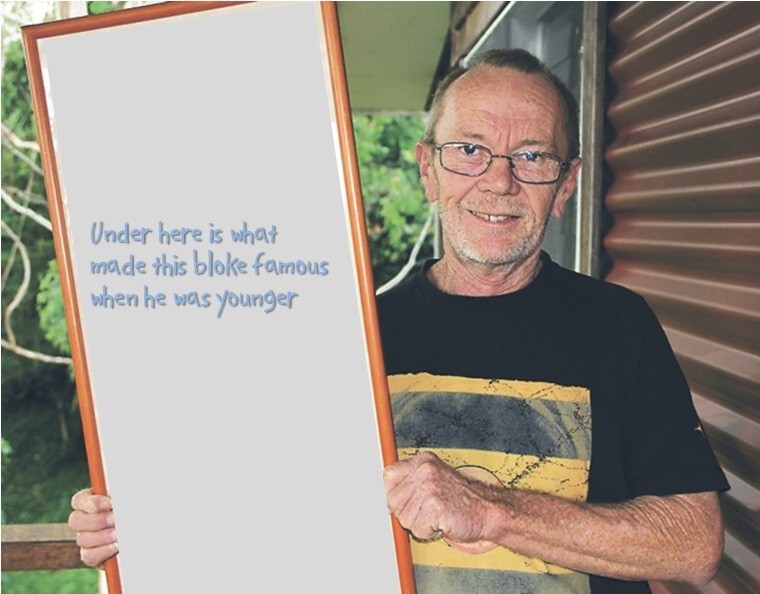 Under here is what
made this bloke famous
when he was younger